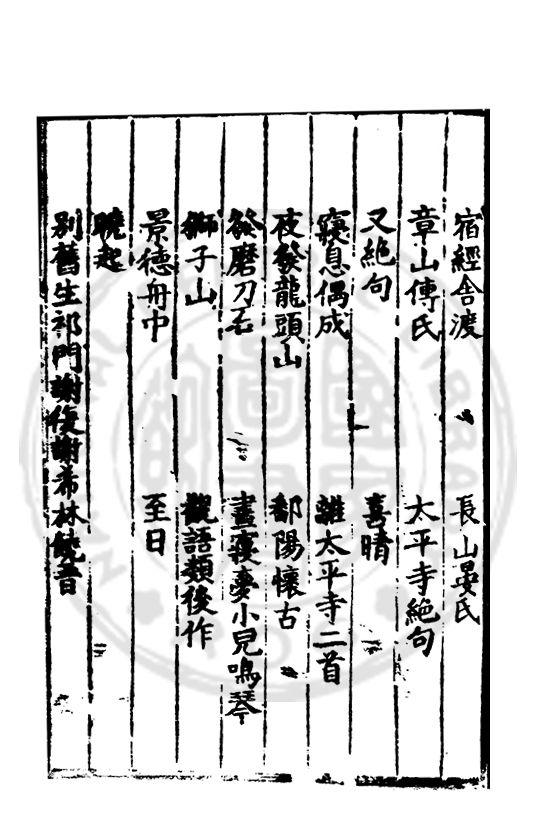 宿經舍渡　長山晏氏
章山傅氏　太平寺絕句
又絕句　喜晴
寢息偶成　離太平寺二首
夜發龍頭山　鄱陽懷古
發磨刀石　晝寢夢小兒鳴琴
獅子山　觀語類後作
景德舟中　至日
曉起
別舊生祁門謝復謝希林饒晉